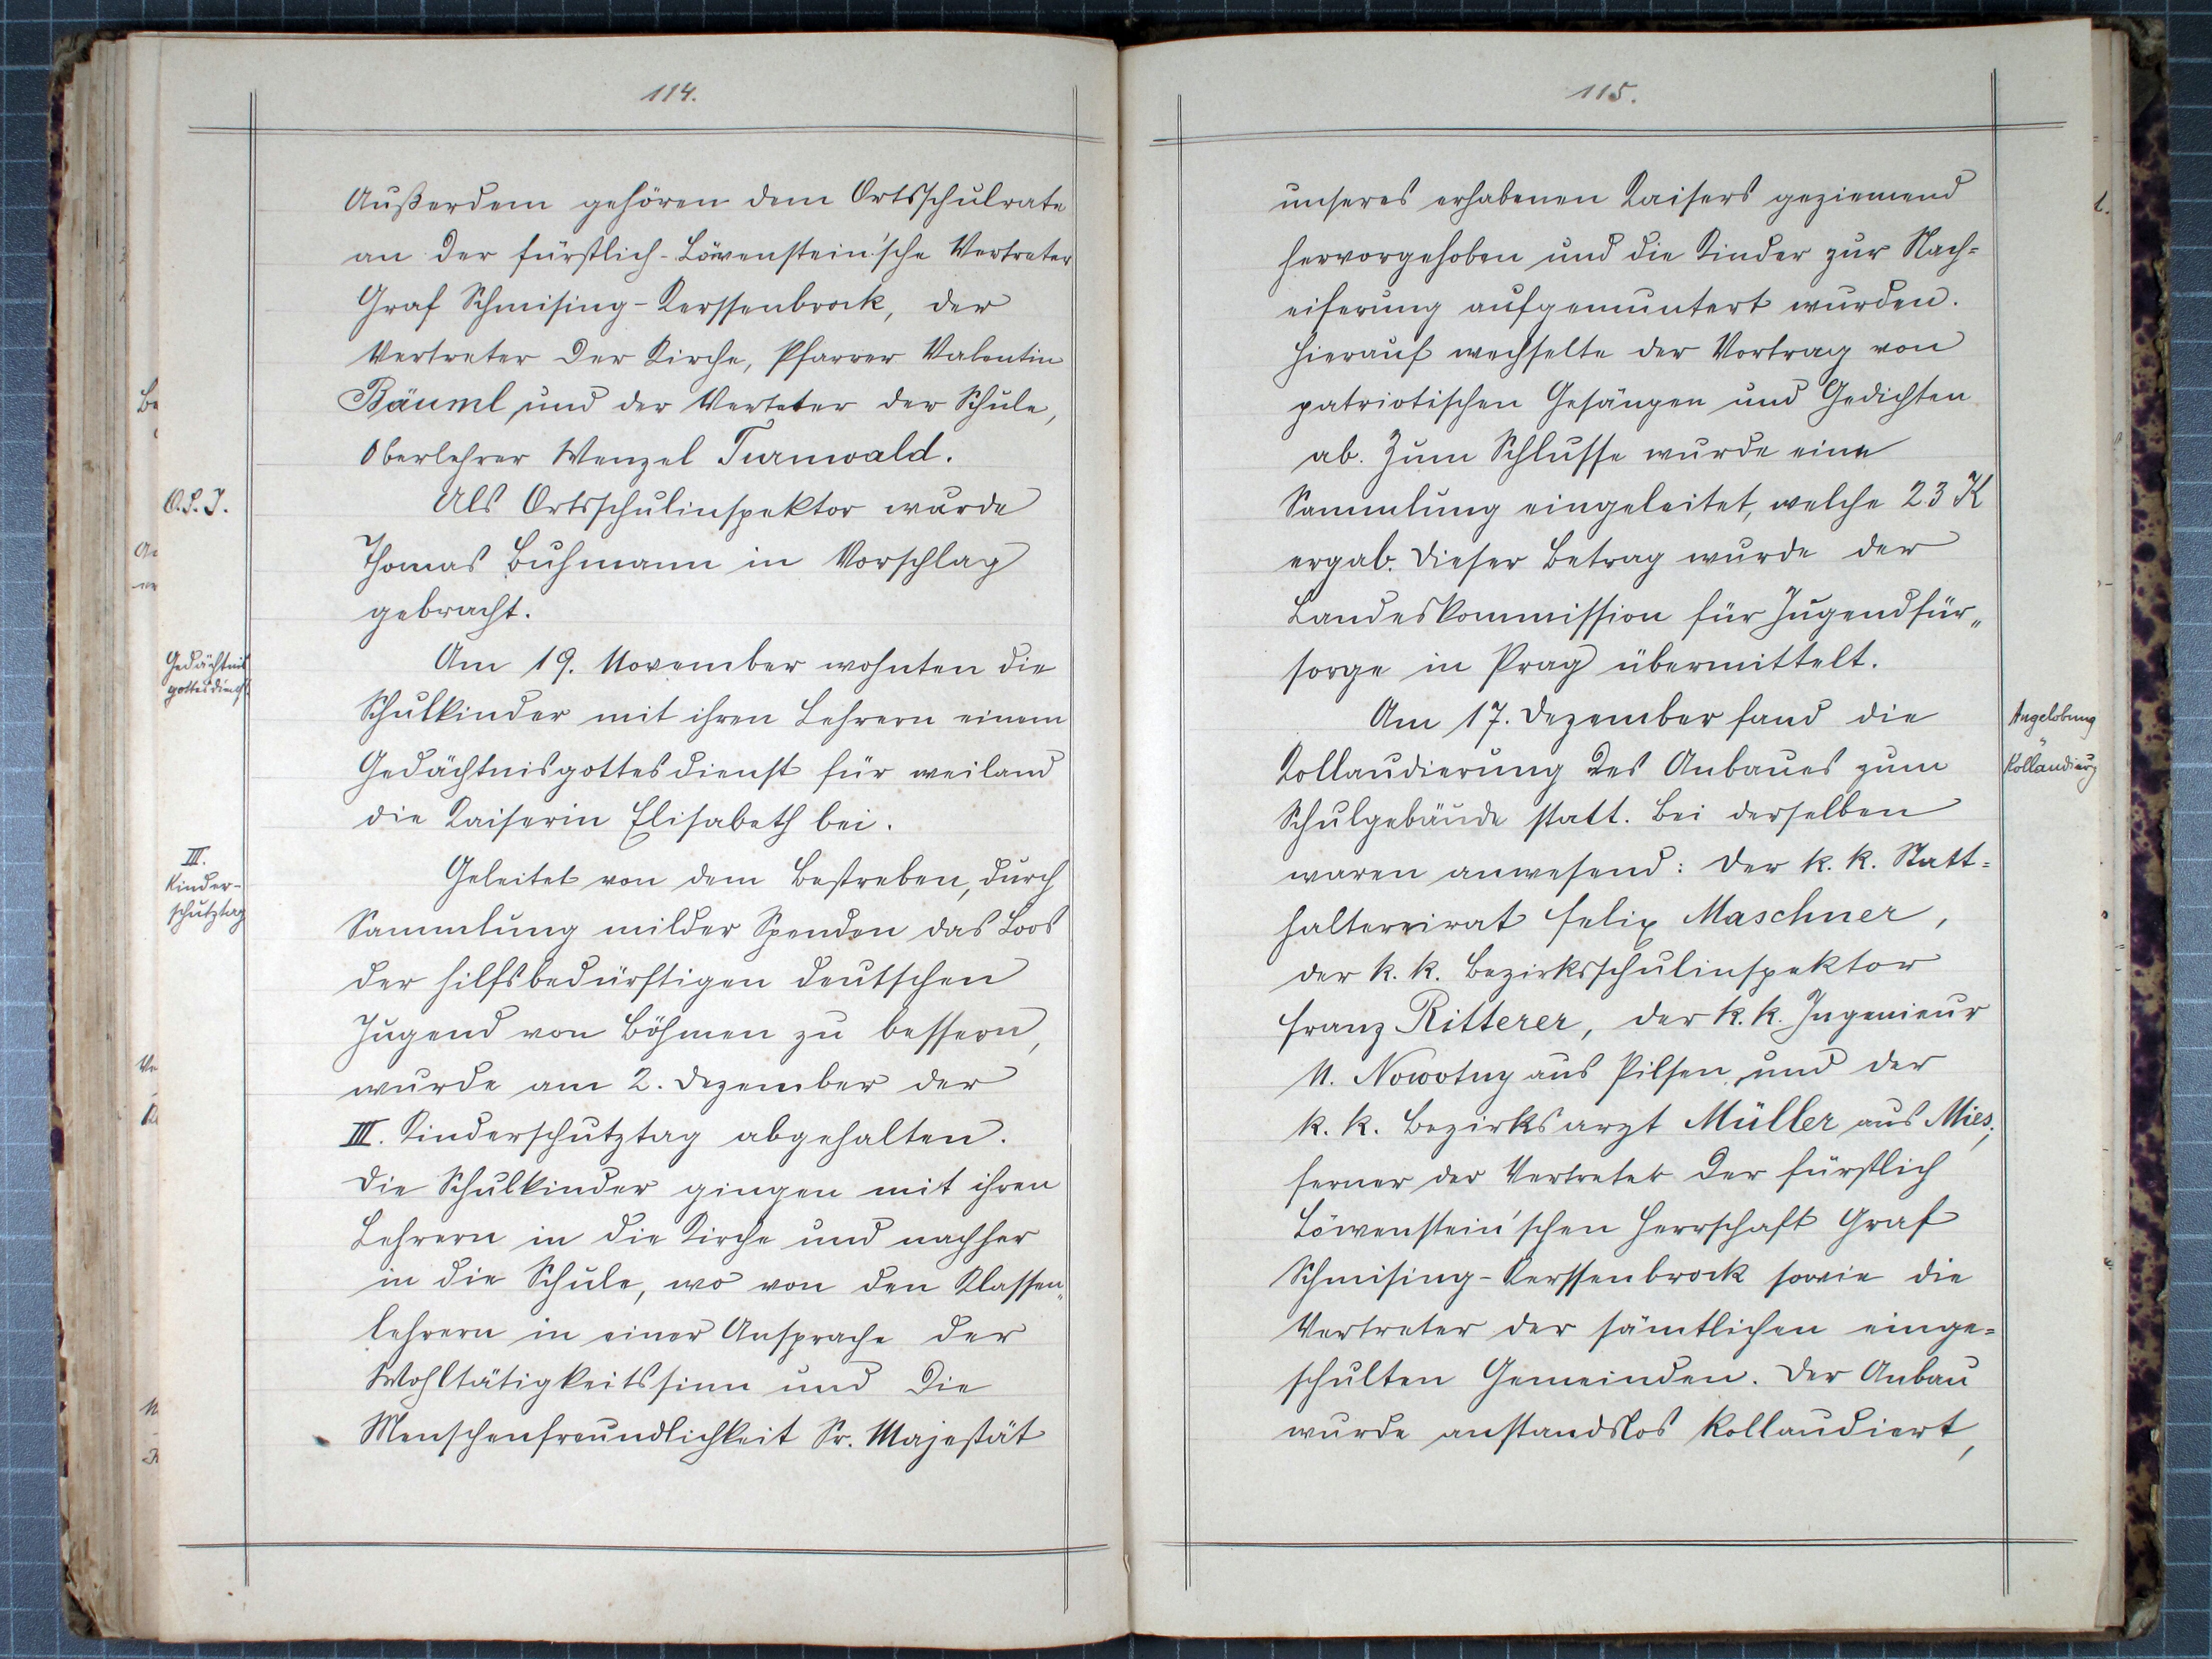 114.
Außerdem gehören dem Ortsschulrate
an der fürstlich-Löwenstein'sche Vertreter
Graf Schmising-Kerssenbrock, der
Vertreter der Kirche, Pfarrer Valentin
Bäuml und der Verteter der Schule,
Oberlehrer Wenzel Turnwald.
O.S.I.
Als Ortsschulinspektor wurde
Thomas Buhmann in Vorschlag
gebracht.
Gedächtnis
gottesdienst.
Am 19. November wohnten die
Schulkinder mit ihren Lehrern einem
Gedächtnisgottesdienst für weiland
die Kaiserin Elisabeth bei.
III.
Kinder-
schutztag
Geleitet von dem Bestreben, durch
Sammlung milder Spenden das Loos
der hilfsbedürftigen deutschen
Jugend von Böhmen zu bessern,
wurde am 2. Dezember der
III. Kinderschutztag abgehalten.
Die Schulkinder gingen mit ihren
Lehrern in die Kirche und nachher
in die Schule, wo von den Klassen„
lehrern in einer Ansprache der
Wohltätigkeitssinn und die
Menschenfreundlichkeit Sr. Majestät
115.
unseres erhabenen Kaisers geziemend
hervorgehoben und die Kinder zur Nach=
eiferung aufgemuntert wurden.
Hierauf wechselte der Vortrag von
patriotischen Gesängen und Gedichten
ab. Zum Schlusse wurde eine
Sammlung eingeleitet, welche 23 K
ergab. Dieser Betrag wurde der
Landeskommission für Jugendfür„
sorge in Prag übermittelt.
Am 17. Dezember fand die
Kollaudierung des Anbaues zum
Schulgebäude statt. Bei derselben
waren anwesend: Der k. k. Statt=
haltereirat Felix Maschner,
der k. k. Bezirksschulinspektor
Franz Ritterer, der k. k. Ingenieur
N. Nowotny aus Pilsen und der
k. k. Bezirksarzt Müller aus Mies;
ferner der Vertreter der fürstlich
Löwenstein'schen Herrschaft Graf
Schmising-Kerssenbrock sowie die
Vertreter der sämtlichen einge=
schulten Gemeinden. Der Anbau
wurde anstandslos kollaudiert,
Angelobung
Kollaudierg